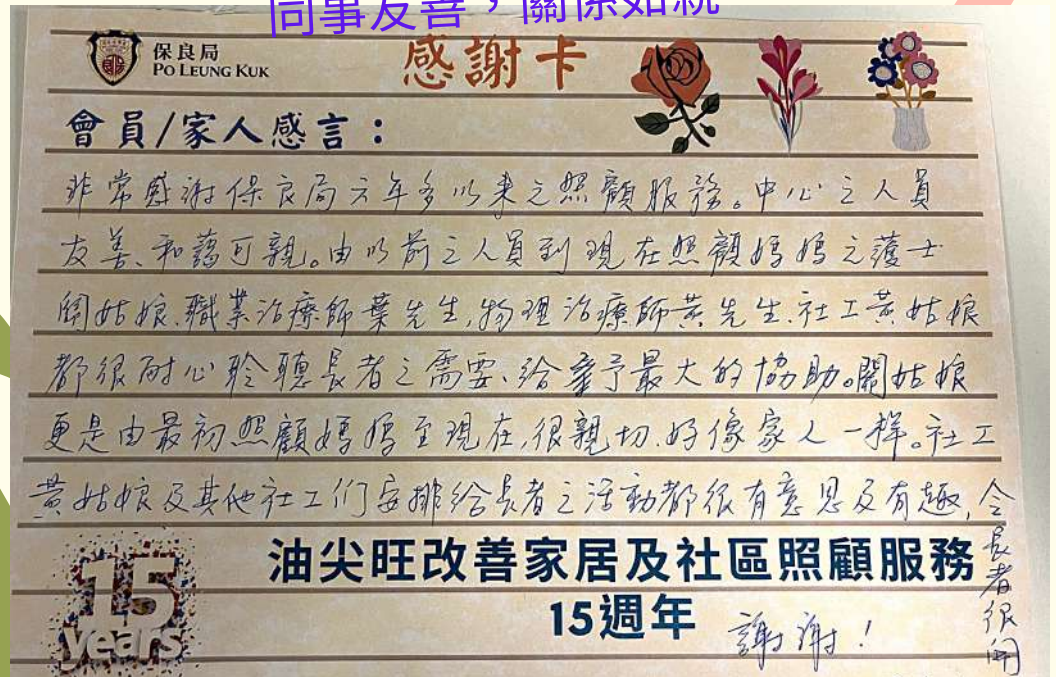 同事友善，關係如
保良局
PO LEUNG KUK
感謝卡
會員/家人感言：
非常感謝保良局六年多以来之照顧服務。中心之人員
友善、和藹可親。由以前之人員到現在照顧媽媽之護士
關姑娘、職業治療師葉先生,物理治療師黃先生.社工黃姑娘
都很耐心聆聽長者之需要、給予最大的協助。關姑娘
更是由最初照顧媽媽至現在,很親切.好像家人一样。社工
黃姑娘及其他社工们安排給長者之活動都很有意思及有趣,
令長者很開
油尖旺改善家居及社區照顧服務
15週年
15
years
謝謝！